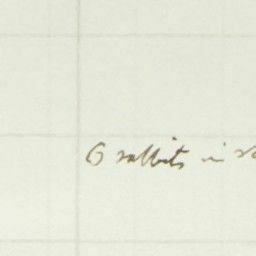 6 rabbits in